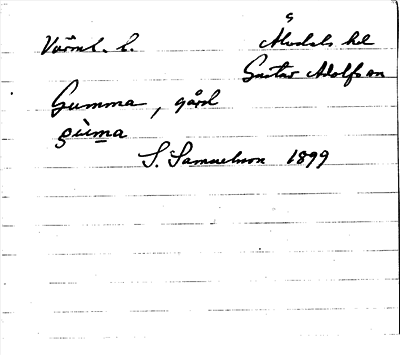 Värml. l. Älvdals hd
Gustav Adolfs sn
Gumma, gård
gùma
S. Samuelsson 1899